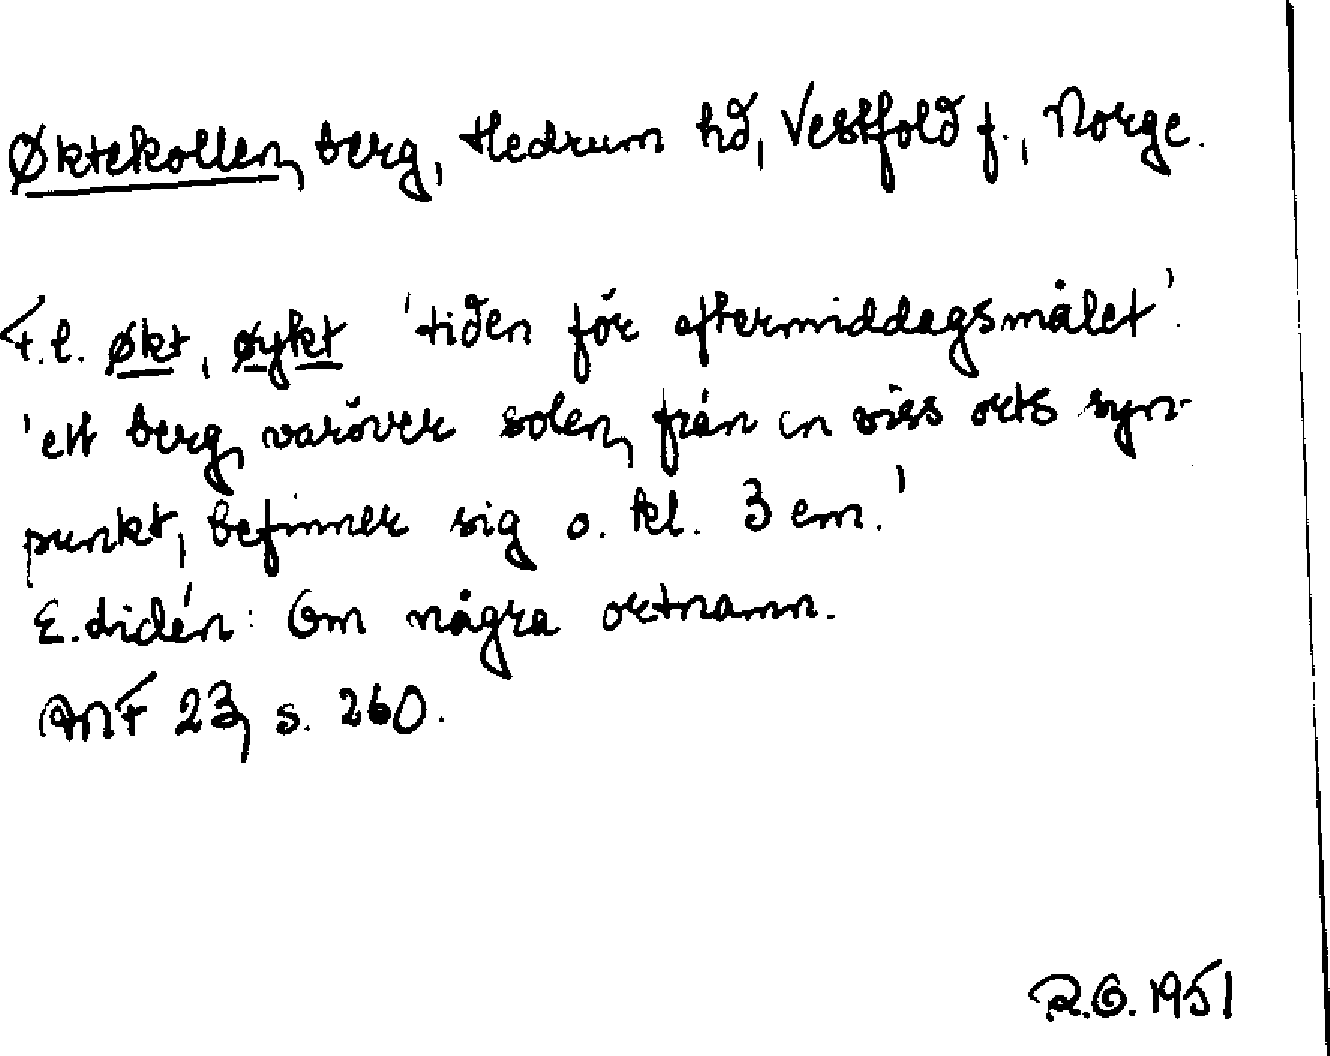 Øktekollen, berg, Hedrum hd, Vestfold f., Norge.
F.l. økt, øykt 'tiden för eftermiddagsmålet'.
'ett berg, varöver solen, från en viss orts syn-
punkt, befinner sig o. kl. 3 em.'
E. Lidén: Om några ortnamn.
ANF 23, s. 260.
R.G. 1951